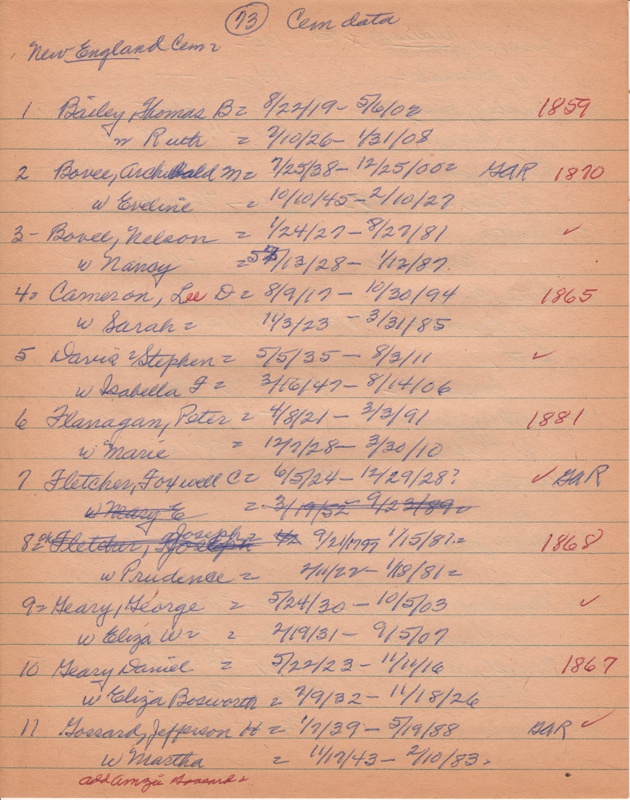 (73) Cem data
New England Cem =
1 Bailey, Thomas B = 8/22/19 - 5/6/02 1859
w Ruth = 7/10/26 - 1/31/08
2 Bovee, Archibald M = 7/25/38 - 12/25/00 = GAR 1870
w Eveline = 10/10/45 - 2/10/27
3 - Bovee, Nelson = 1/24/27 - 8/27/81 ✓
w Nancy = 5/13/28 - 1/12/87.
4 = Cameron, Lee D = 8/9/17 - 10/30/94 1865
w Sarah = 11/3/23 - 3/31/85
5 Davis = Stephen = 5/5/35 - 8/3/11 ✓
w Isabella F = 3/16/47 - 8/14/06
6 Flanagan, Peter = 4/8/21 - 3/3/91 1881
w Marie = 12/7/28 - 3/30/10
7 Fletcher, Foxwell C = 6/5/24 - 12/29/28? ✓ GAR
w Mary E = 3/19/52 - 9/23/89 =
8 = Fletcher, Joseph = 9/21/1797 1/15/81 = 1868
w Prudence = 2/11/22 - 1/18/81 =
9 = Geary, George = 5/24/30 - 10/5/03 ✓
w Eliza W = = 2/19/31 - 9/5/07
10 Geary Daniel = 5/22/23 - 11/11/16 1867
w Eliza Bosworth = 2/9/32 - 11/18/26
11 Gossard, Jefferson H = 1/7/39 - 5/19/88 GAR ✓
w Martha = 11/17/43 - 2/10/83.
add Amzie Gossard =